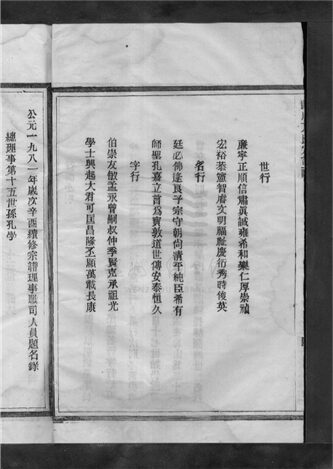 世行
廉寧正順信肅真誠雍希和樂仁厚崇禎
宏裕恭憲智睿文明福祉慶衍秀時俊英
名行
廷必佛達良子宗守朝尚清平純臣希有
師聖孔嘉立首為寶敦道世傳安泰恒久
字行
伯崇友敏孟永曾嗣叔仲季賢克承祖光
學士興起大君可匡昌隆丕願萬載長康
公元一九八一年歲次辛酉續修宗譜理事職司人員題名錄
總理事第十五世孫孔學